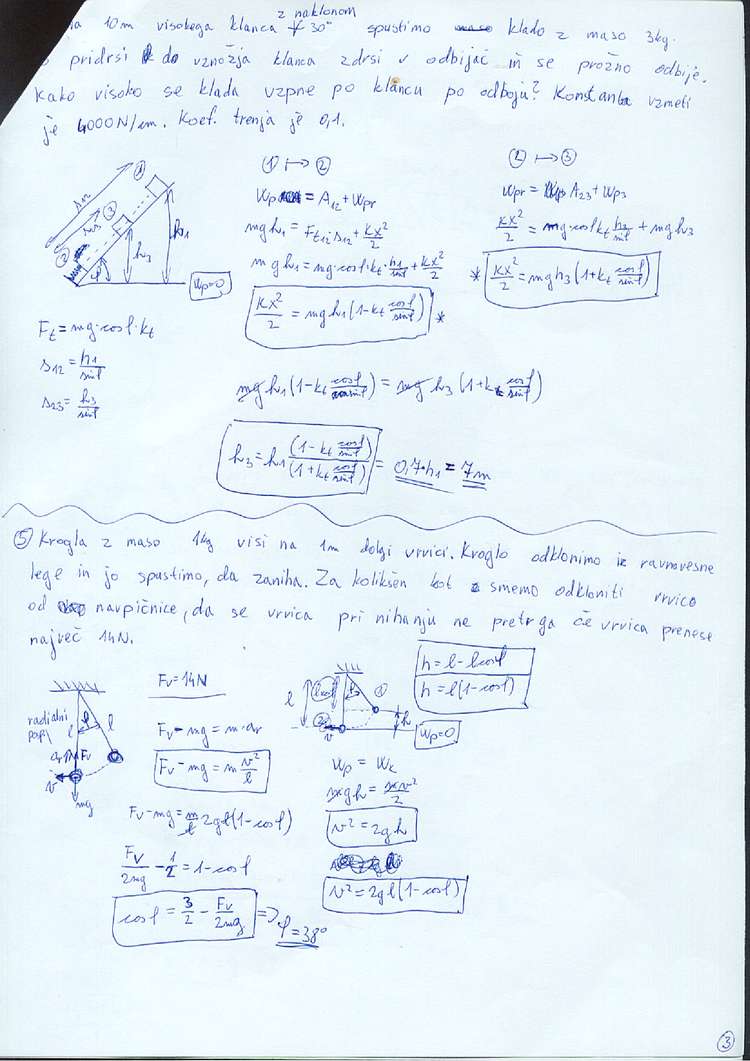 z naklonom
10m visokega klanca ∢ 30° spustimo klado z maso 3kg.
pridrsi do vznožja klanca zdrsi v odbijač in se prožno odbije.
Kako visoko se klada vzpne po klancu po odboju? Konstanta vzmeti
je 4000N/cm. Koef. trenja je 0,1.
① ↦ ②
Wp = A12 + Wpr
mgh1 = Ft12·s12 + kx²/2
mgh1 = mg·cosφ·kt·h1/sinφ + kx²/2
kx²/2 = mgh1(1-kt cosφ/sinφ) *
② ↦ ③
Wpr = A23 + Wp3
kx²/2 = mg·cosφ kt h3/sinφ + mgh3
* kx²/2 = mgh3(1+kt cosφ/sinφ)
s12
①
③
②
h3
h1
φ
Wp=0
Ft = mg·cosφ·kt
s12 = h1/sinφ
s23 = h3/sinφ
mgh1(1-kt cosφ/sinφ) = mgh3(1+kt cosφ/sinφ)
h3 = h1 (1-kt cosφ/sinφ)/(1+kt cosφ/sinφ) = 0,7·h1 = 7m
⑤ Krogla z maso 1kg visi na 1m dolgi vrvici. Kroglo odklonimo iz ravnovesne
lege in jo spustimo, da zaniha. Za kolikšen kot smemo odkloniti vrvico
od navpičnice, da se vrvica pri nihanju ne pretrga če vrvica prenese
največ 14N.
radialni
l
φ
l
ar
Fv
v
mg
Fv = 14N
Fv - mg = m·ar
Fv - mg = m v²/l
Fv - mg = m/l 2gl(1-cosφ)
Fv/2mg - 1/2 = 1-cosφ
cosφ = 3/2 - Fv/2mg => φ = 38°
l
lcosφ
①
②
h
v
Wp=0
h = l - lcosφ
h = l(1-cosφ)
Wp = Wk
mgh = mv²/2
v² = 2gh
v² = 2gl(1-cosφ)
③